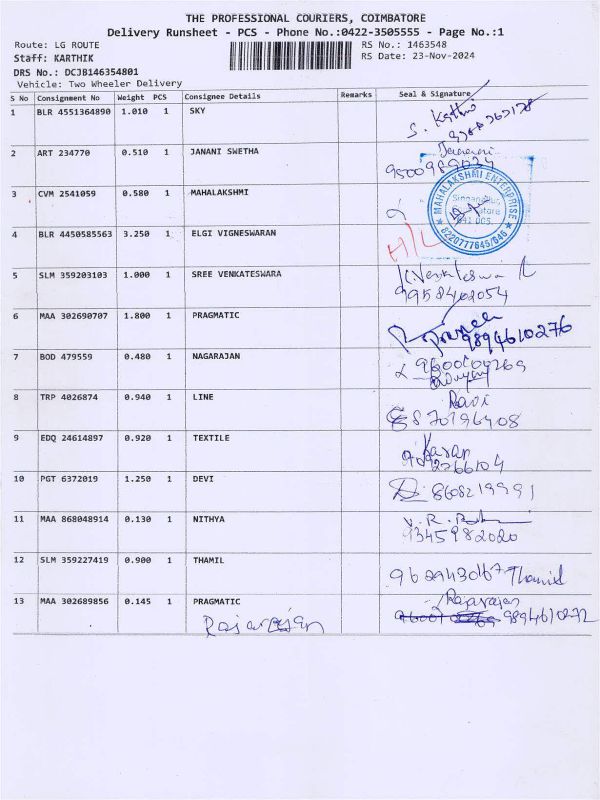 THE PROFESSIONAL COURIERS, COIMBATORE
Delivery Runsheet - PCS - Phone No.:0422-3505555 - Page No.:1
Route: LG ROUTE RS No.: 1463548
Staff: KARTHIK RS Date: 23-Nov-2024
DRS No.: DCJB146354801
Vehicle: Two Wheeler Delivery
S No Consignment No Weight PCS Consignee Details Remarks Seal & Signature
1 BLR 4551364890 1.010 1 SKY
2 ART 234770 0.510 1 JANANI SWETHA
3 CVM 2541059 0.580 1 MAHALAKSHMI
MAHALAKSHMI ENTERPRISE
8220777645/646
4 BLR 4450585563 3.250 1 ELGI VIGNESWARAN H/L
5 SLM 359203103 1.000 1 SREE VENKATESWARA
9958402054
6 MAA 302690707 1.800 1 PRAGMATIC
9894610276
7 BOD 479559 0.480 1 NAGARAJAN
8 TRP 4026874 0.940 1 LINE Ravi
9 EDQ 24614897 0.920 1 TEXTILE Karan
10 PGT 6372019 1.250 1 DEVI D. 8608219991
11 MAA 868048914 0.130 1 NITHYA
9345982020
12 SLM 359227419 0.900 1 THAMIL
13 MAA 302689856 0.145 1 PRAGMATIC Rajarajan
Rajarajan 9894610272